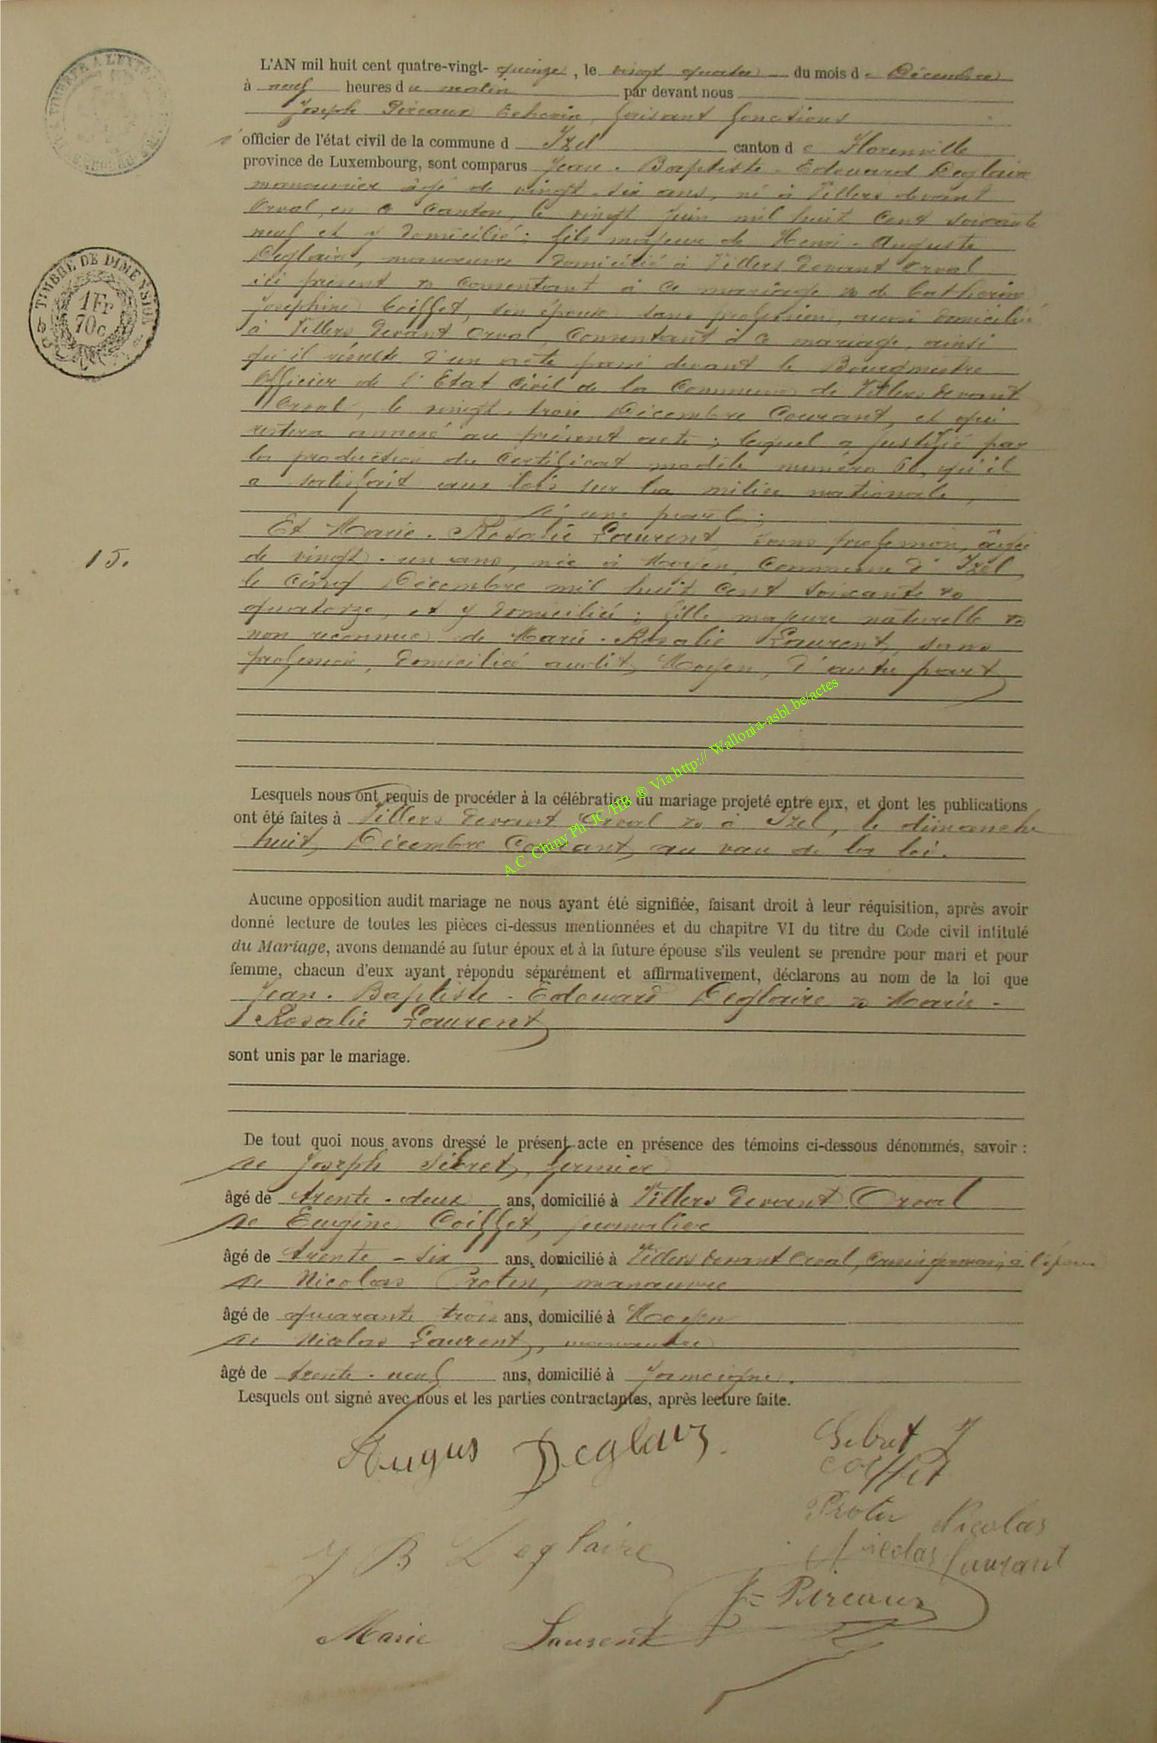 L'AN mil huit cent quatre-vingt-quinze, le vingt quatre du mois de Décembre
à neuf heures du matin par devant nous
Joseph Pireaux Echevin, faisant fonctions
d'officier de l'état civil de la commune d Izel canton de Florenville
province de Luxembourg, sont comparus Jean-Baptiste-Edouard Deglaire
manouvrier âgé de vingt-six ans, né à Villers devant
Orval, en ce Canton, le vingt Juin mil huit Cent Soixante
neuf et y domicilié; fils majeur de Henri-Auguste
Deglaire, manoeuvre domicilié à Villers devant Orval
ici présent & Consentant à ce mariage & de Catherine
Joséphine Coiffet, son épouse sans profession, aussi domiciliée
à Villers devant Orval, Consentant à ce mariage, ainsi
qu'il résulte d'un acte passé devant le Bourgmestre
Officier de l'Etat Civil de la Commune de Villers devant
Orval, le vingt-trois Décembre Courant, et qui
restera annexé au présent acte; lequel a justifié par
la production du Certificat modèle numéro qu'il
a satisfait aux lois sur la milice nationale,
d'une part;
Et Marie-Rosalie Laurent, sans profession, âgée
de vingt-un ans, née à Moyen, Commune d'Izel
le Cinq Décembre mil huit Cent Soixante &
quatorze, et y domiciliée; fille majeure naturelle &
non reconnue de Marie-Rosalie Laurent, sans
profession, domiciliée audit Moyen, d'autre part
15.
Lesquels nous ont requis de procéder à la célébration du mariage projeté entre eux, et dont les publications
ont été faites à Villers devant Orval & à Izel, le dimanche
huit Décembre Courant, au vœu de la loi.
Aucune opposition audit mariage ne nous ayant été signifiée, faisant droit à leur réquisition, après avoir
donné lecture de toutes les pièces ci-dessus mentionnées et du chapitre VI du titre du Code civil intitulé
du Mariage, avons demandé au futur époux et à la future épouse s'ils veulent se prendre pour mari et pour
femme, chacun d'eux ayant répondu séparément et affirmativement, déclarons au nom de la loi que
Jean-Baptiste-Edouard Deglaire & Marie-
Rosalie Laurent
sont unis par le mariage.
De tout quoi nous avons dressé le présent acte en présence des témoins ci-dessous dénommés, savoir :
de Joseph Sibret, fermier
âgé de trente-deux ans, domicilié à Villers devant Orval
de Eugène Coiffet, journalier
âgé de trente-six ans, domicilié à Villers devant Orval, Cousin germain à l'époux
de Nicolas Protin, manoeuvre
âgé de quarante trois ans, domicilié à Moyen
de Nicolas Laurent,
âgé de trente-neuf ans, domicilié à Jamoigne.
Lesquels ont signé avec nous et les parties contractantes, après lecture faite.
Augus Deglair.
Sibret J
Coiffet
Protin Nicolas
Nicolas Laurant
J B Deglaire
J. Pireaux
Marie Laurent
TIMBRE DE DIMENSION
1 FR
70 C.
A.C. Chiny Ph JC /HB ® Via http:// Wallonia-asbl.be/actes